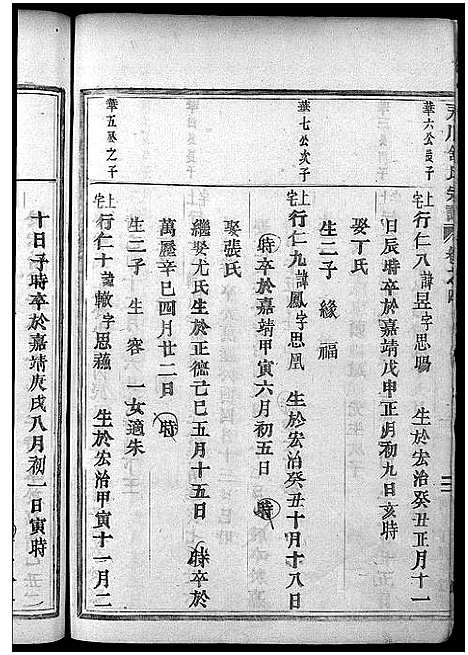 華六公長子
上宅行仁八諱昱字思暘 生於宏治癸丑正月十一
日辰時卒於嘉靖戊申正月初九日亥時
娶丁氏
生二子 緣 福
華七公次子
上宅行仁九諱鳳字思凰 生於宏治癸丑十月十八日
時卒於嘉靖甲寅六月初五日 時
娶張氏
繼娶尤氏生於正德己巳五月十五日 時卒於
萬曆辛巳四月廿二日 時
生二子 生 容 一女適朱
華五墓之子
上宅行仁十諱轍字思蘊 生於宏治甲寅十一月二
十日子時卒於嘉靖庚戌八月初一日寅時